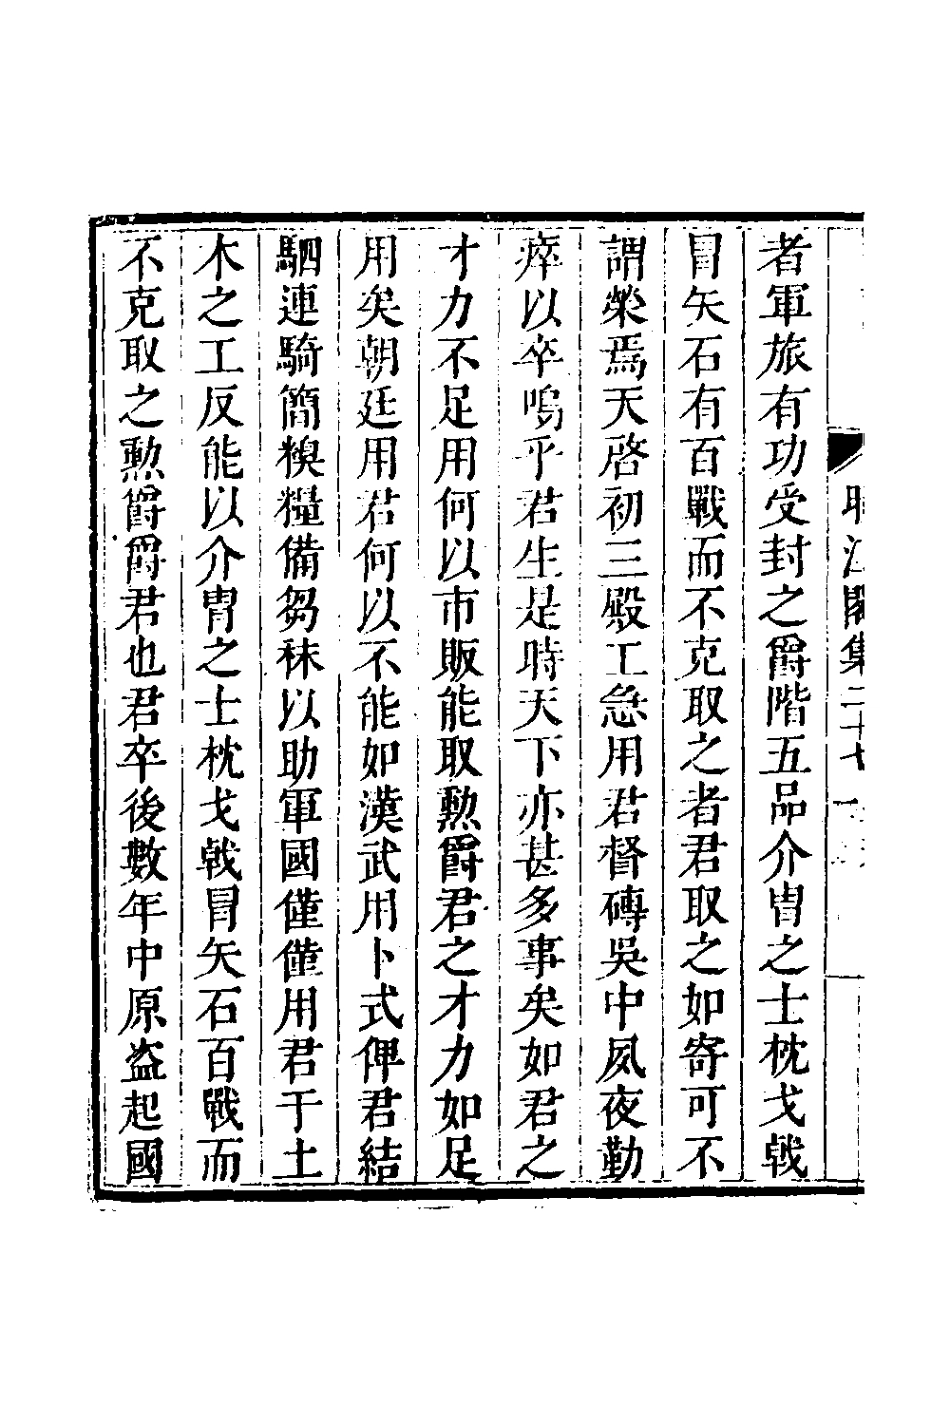 者軍旅有功受封之爵階五品介冑之士枕戈戟
冒矢石有百戰而不克取之者君取之如寄可不
謂榮焉天啓初三殿工急用君督磚吳中夙夜勤
瘁以卒嗚乎君生是時天下亦甚多事矣如君之
才力不足用何以市販能取勲爵君之才力如足
用矣朝廷用君何以不能如漢武用卜式俾君結
駟連騎簡糗糧備芻秣以助軍國僅僅用君于土
木之工反能以介冑之士枕戈戟冒矢石百戰而
不克取之勲爵爵君也君卒後數年中原盗起國
江閣集二十七